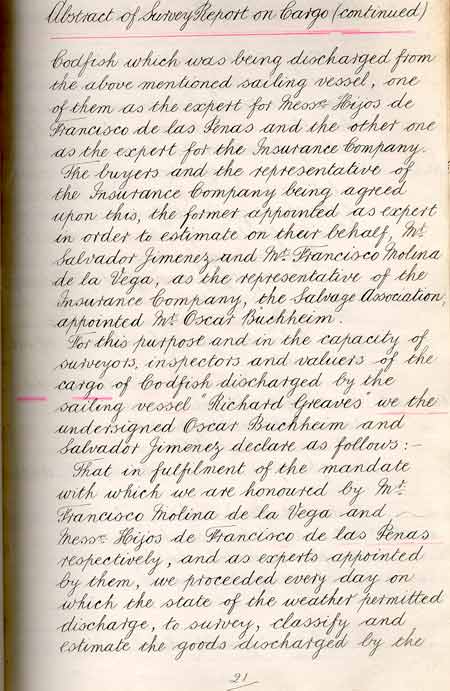 Abstract of Survey Report on Cargo (continued)
Codfish which was being discharged from
the above mentioned sailing vessel, one
of them as the expert for Messrs Hijos de
Francisco de las Penas and the other one
as the expert for the Insurance Company.
The buyers and the representative of
the Insurance Company being agreed
upon this, the former appointed as expert
in order to estimate on their behalf, Mr.
Salvador Jimenez and Mr. Francisco Molina
de la Vega, as the representative of the
Insurance Company, the Salvage Association,
appointed Mr. Oscar Buchheim.
For this purpose and in the capacity of
surveyors, inspectors and valuers of the
cargo of Codfish discharged by the
sailing vessel "Richard Greaves" we the
undersigned Oscar Buchheim and
Salvador Jimenez declare as follows:-
That in fulfilment of the mandate
with which we are honoured by Mr.
Francisco Molina de la Vega and
Messrs. Hijos de Francisco de las Penas
respectively, and as experts appointed
by them, we proceeded every day on
which the state of the weather permitted
discharge, to survey, classify and
estimate the goods discharged by the
21